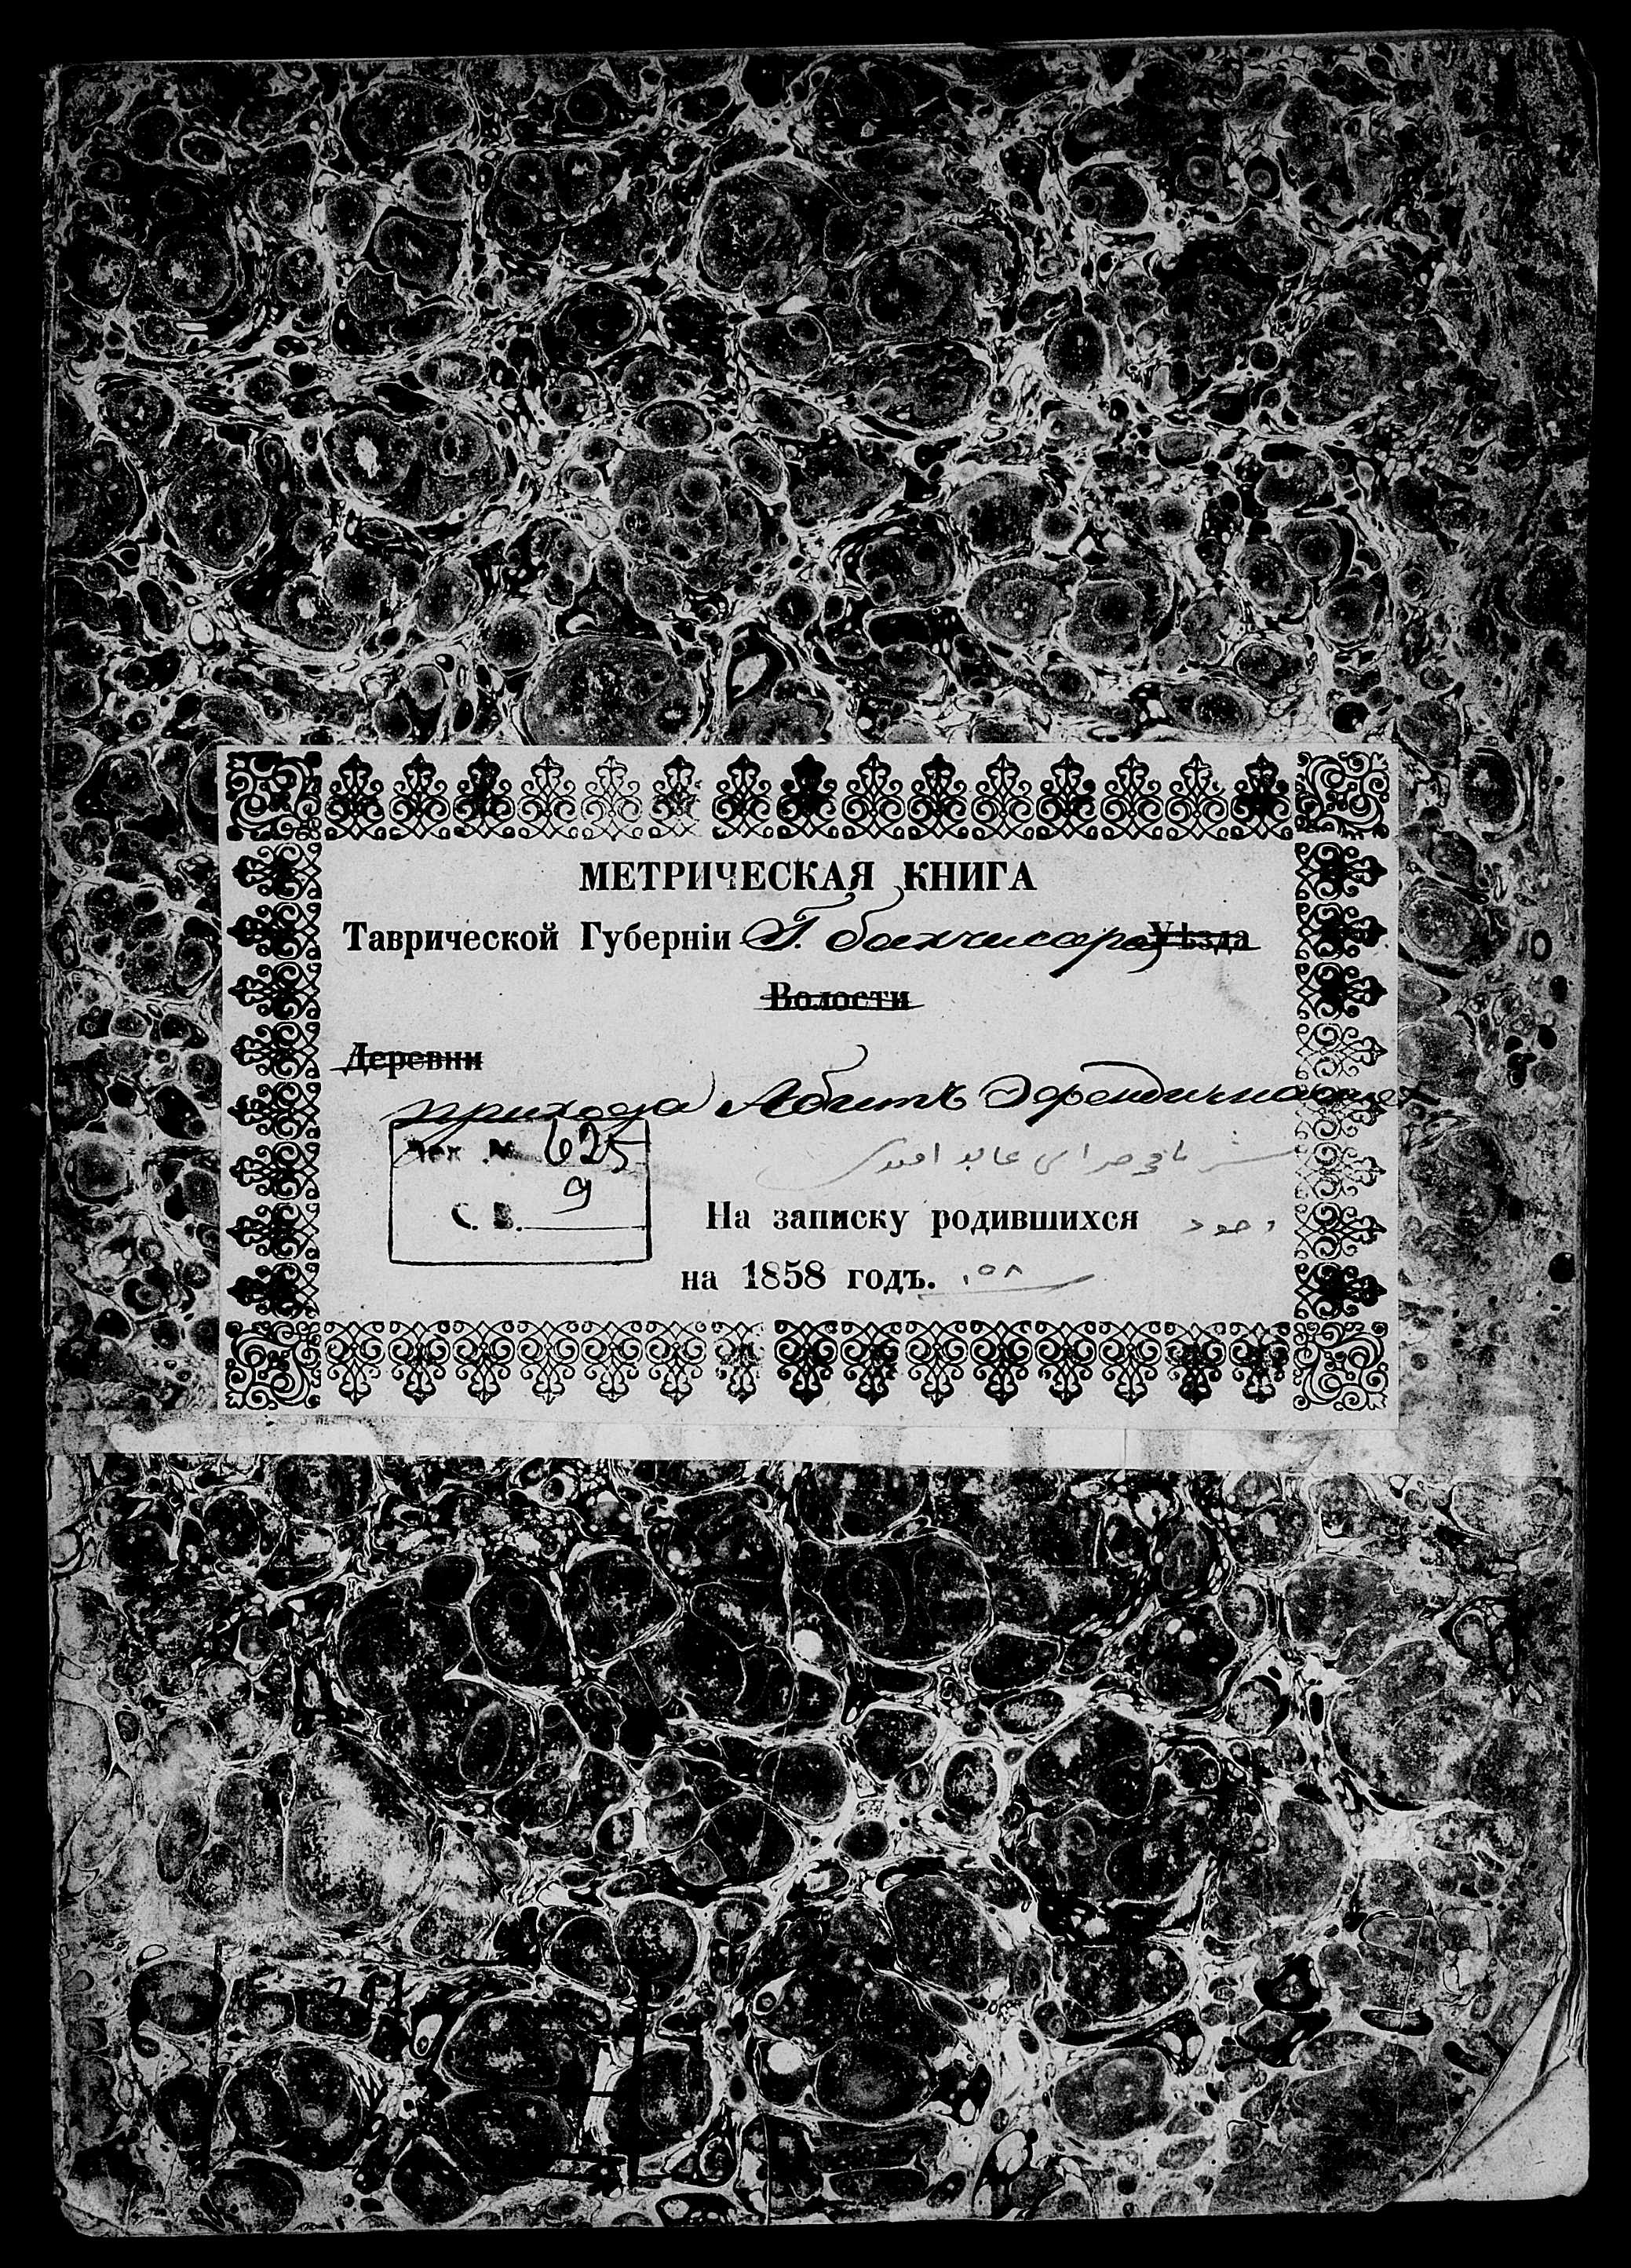 МЕТРИЧЕСКАЯ КНИГА
Таврической Губерніи Г. бахчисара Уѣзда
Волости
Деревни
прихода Абитъ Эфенди
625
9
С. В.
На записку родившихся
на 1858 годъ. ٥٨